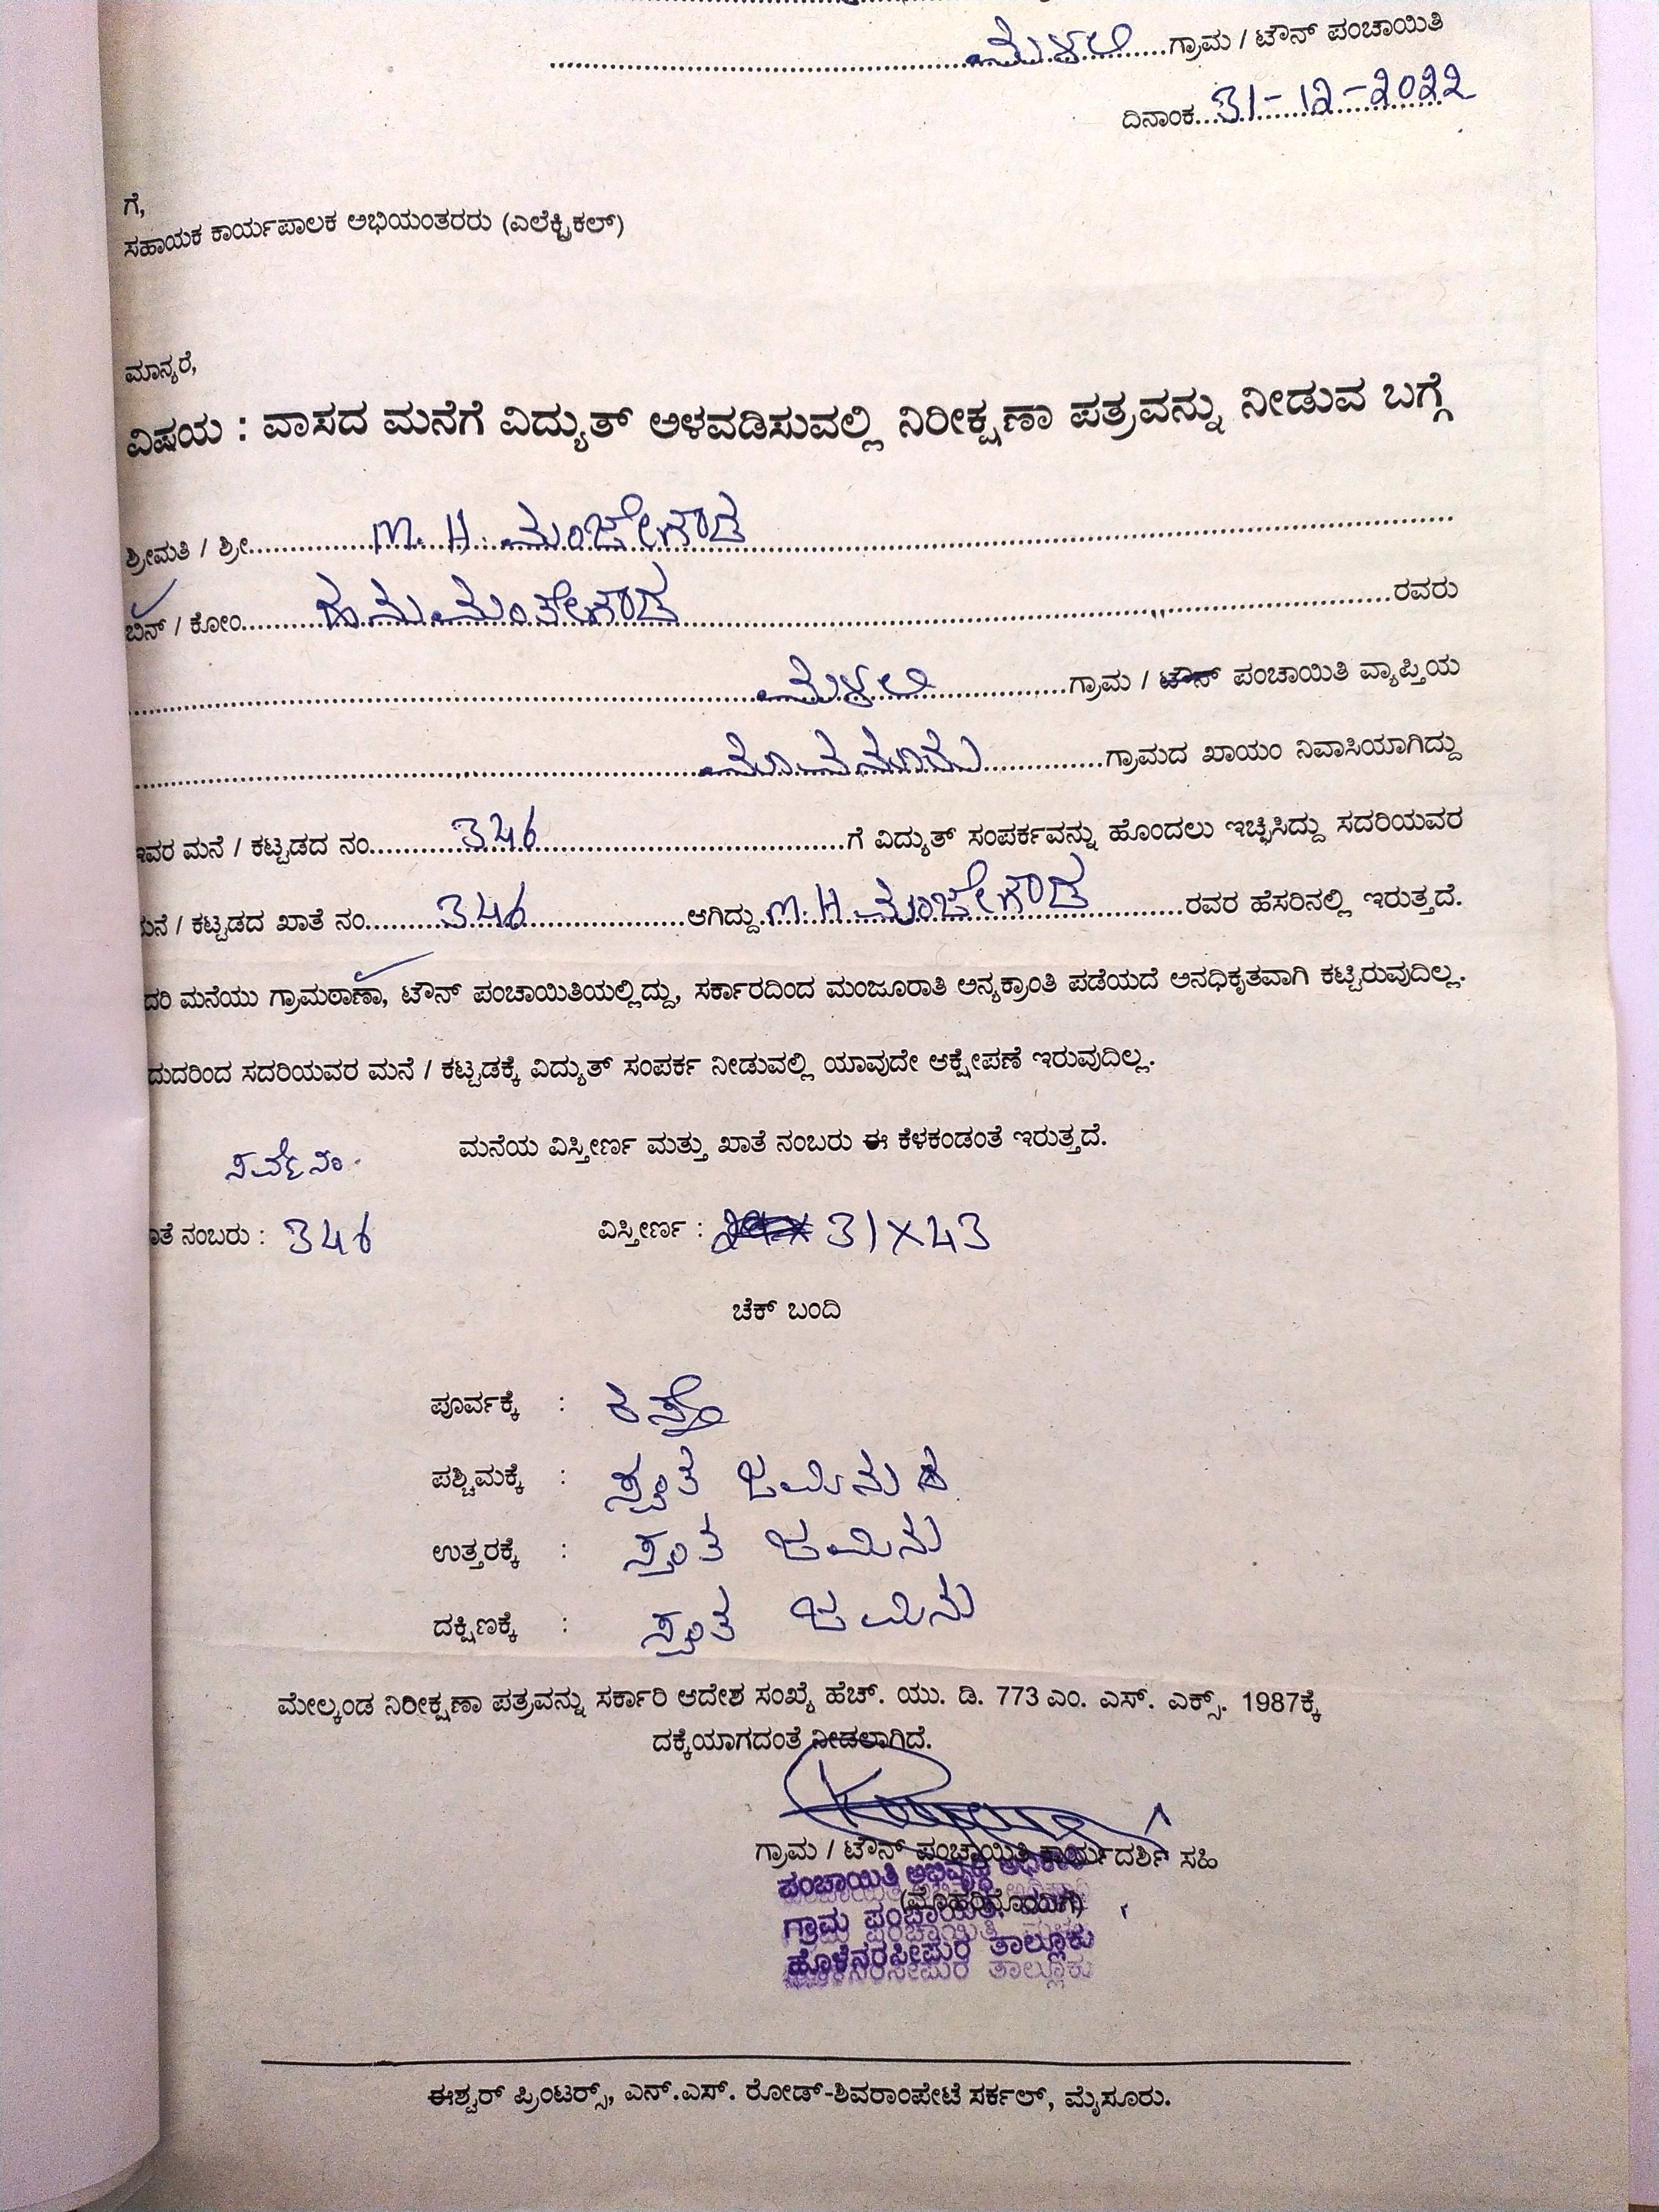 ಗ್ರಾಮ / ಟೌನ್ ಪಂಚಾಯಿತಿ
ದಿನಾಂಕ 31-12-2022
ಗೆ,
ಸಹಾಯಕ ಕಾರ್ಯಪಾಲಕ ಅಭಿಯಂತರರು (ಎಲೆಕ್ಟ್ರಿಕಲ್)
ಮಾನ್ಯರೆ,
ವಿಷಯ : ವಾಸದ ಮನೆಗೆ ವಿದ್ಯುತ್ ಅಳವಡಿಸುವಲ್ಲಿ ನಿರೀಕ್ಷಣಾ ಪತ್ರವನ್ನು ನೀಡುವ ಬಗ್ಗೆ
ಶ್ರೀಮತಿ / ಶ್ರೀ M. H. ಮಂಜೇಗೌಡ
ಬಿನ್ / ಕೋಂ ರವರು
ಗ್ರಾಮ / ಟೌನ್ ಪಂಚಾಯಿತಿ ವ್ಯಾಪ್ತಿಯ
ಗ್ರಾಮದ ಖಾಯಂ ನಿವಾಸಿಯಾಗಿದ್ದು
ಇವರ ಮನೆ / ಕಟ್ಟಡದ ನಂ 346 ಗೆ ವಿದ್ಯುತ್ ಸಂಪರ್ಕವನ್ನು ಹೊಂದಲು ಇಚ್ಛಿಸಿದ್ದು ಸದರಿಯವರ
ಮನೆ / ಕಟ್ಟಡದ ಖಾತೆ ನಂ 346 ಆಗಿದ್ದು M. H ಮಂಜೇಗೌಡ ರವರ ಹೆಸರಿನಲ್ಲಿ ಇರುತ್ತದೆ.
ದರಿ ಮನೆಯು ಗ್ರಾಮಠಾಣಾ, ಟೌನ್ ಪಂಚಾಯಿತಿಯಲ್ಲಿದ್ದು, ಸರ್ಕಾರದಿಂದ ಮಂಜೂರಾತಿ ಅನ್ಯಕ್ರಾಂತಿ ಪಡೆಯದೆ ಅನಧಿಕೃತವಾಗಿ ಕಟ್ಟಿರುವುದಿಲ್ಲ.
ದುದರಿಂದ ಸದರಿಯವರ ಮನೆ / ಕಟ್ಟಡಕ್ಕೆ ವಿದ್ಯುತ್ ಸಂಪರ್ಕ ನೀಡುವಲ್ಲಿ ಯಾವುದೇ ಆಕ್ಷೇಪಣೆ ಇರುವುದಿಲ್ಲ.
ಮನೆಯ ವಿಸ್ತೀರ್ಣ ಮತ್ತು ಖಾತೆ ನಂಬರು ಈ ಕೆಳಕಂಡಂತೆ ಇರುತ್ತದೆ.
ಸರ್ವೆ ನಂ.
ಾತೆ ನಂಬರು : 346 ವಿಸ್ತೀರ್ಣ : 31X43
ಚೆಕ್ ಬಂದಿ
ಪೂರ್ವಕ್ಕೆ : ರಸ್ತೆ
ಪಶ್ಚಿಮಕ್ಕೆ : ಸ್ವಂತ ಜಮೀನು
ಉತ್ತರಕ್ಕೆ : ಸ್ವಂತ ಜಮೀನು
ದಕ್ಷಿಣಕ್ಕೆ : ಸ್ವಂತ ಜಮೀನು
ಮೇಲ್ಕಂಡ ನಿರೀಕ್ಷಣಾ ಪತ್ರವನ್ನು ಸರ್ಕಾರಿ ಆದೇಶ ಸಂಖ್ಯೆ ಹೆಚ್. ಯು. ಡಿ. 773 ಎಂ. ಎಸ್. ಎಕ್ಸ್. 1987ಕ್ಕೆ
ದಕ್ಕೆಯಾಗದಂತೆ ನೀಡಲಾಗಿದೆ.
ಗ್ರಾಮ / ಟೌನ್ ಪಂಚಾಯಿತಿ ಕಾರ್ಯದರ್ಶಿ ಸಹಿ
(ಮೊಹರಿನೊಂದಿಗೆ)
ಪಂಚಾಯಿತಿ ಅಭಿವೃದ್ಧಿ ಅಧಿಕಾರಿ
ಗ್ರಾಮ ಪಂಚಾಯಿತಿ
ಹೊಳೆನರಸೀಪುರ ತಾಲ್ಲೂಕು
ಈಶ್ವರ್ ಪ್ರಿಂಟರ್ಸ್, ಎನ್.ಎಸ್. ರೋಡ್-ಶಿವರಾಂಪೇಟೆ ಸರ್ಕಲ್, ಮೈಸೂರು.